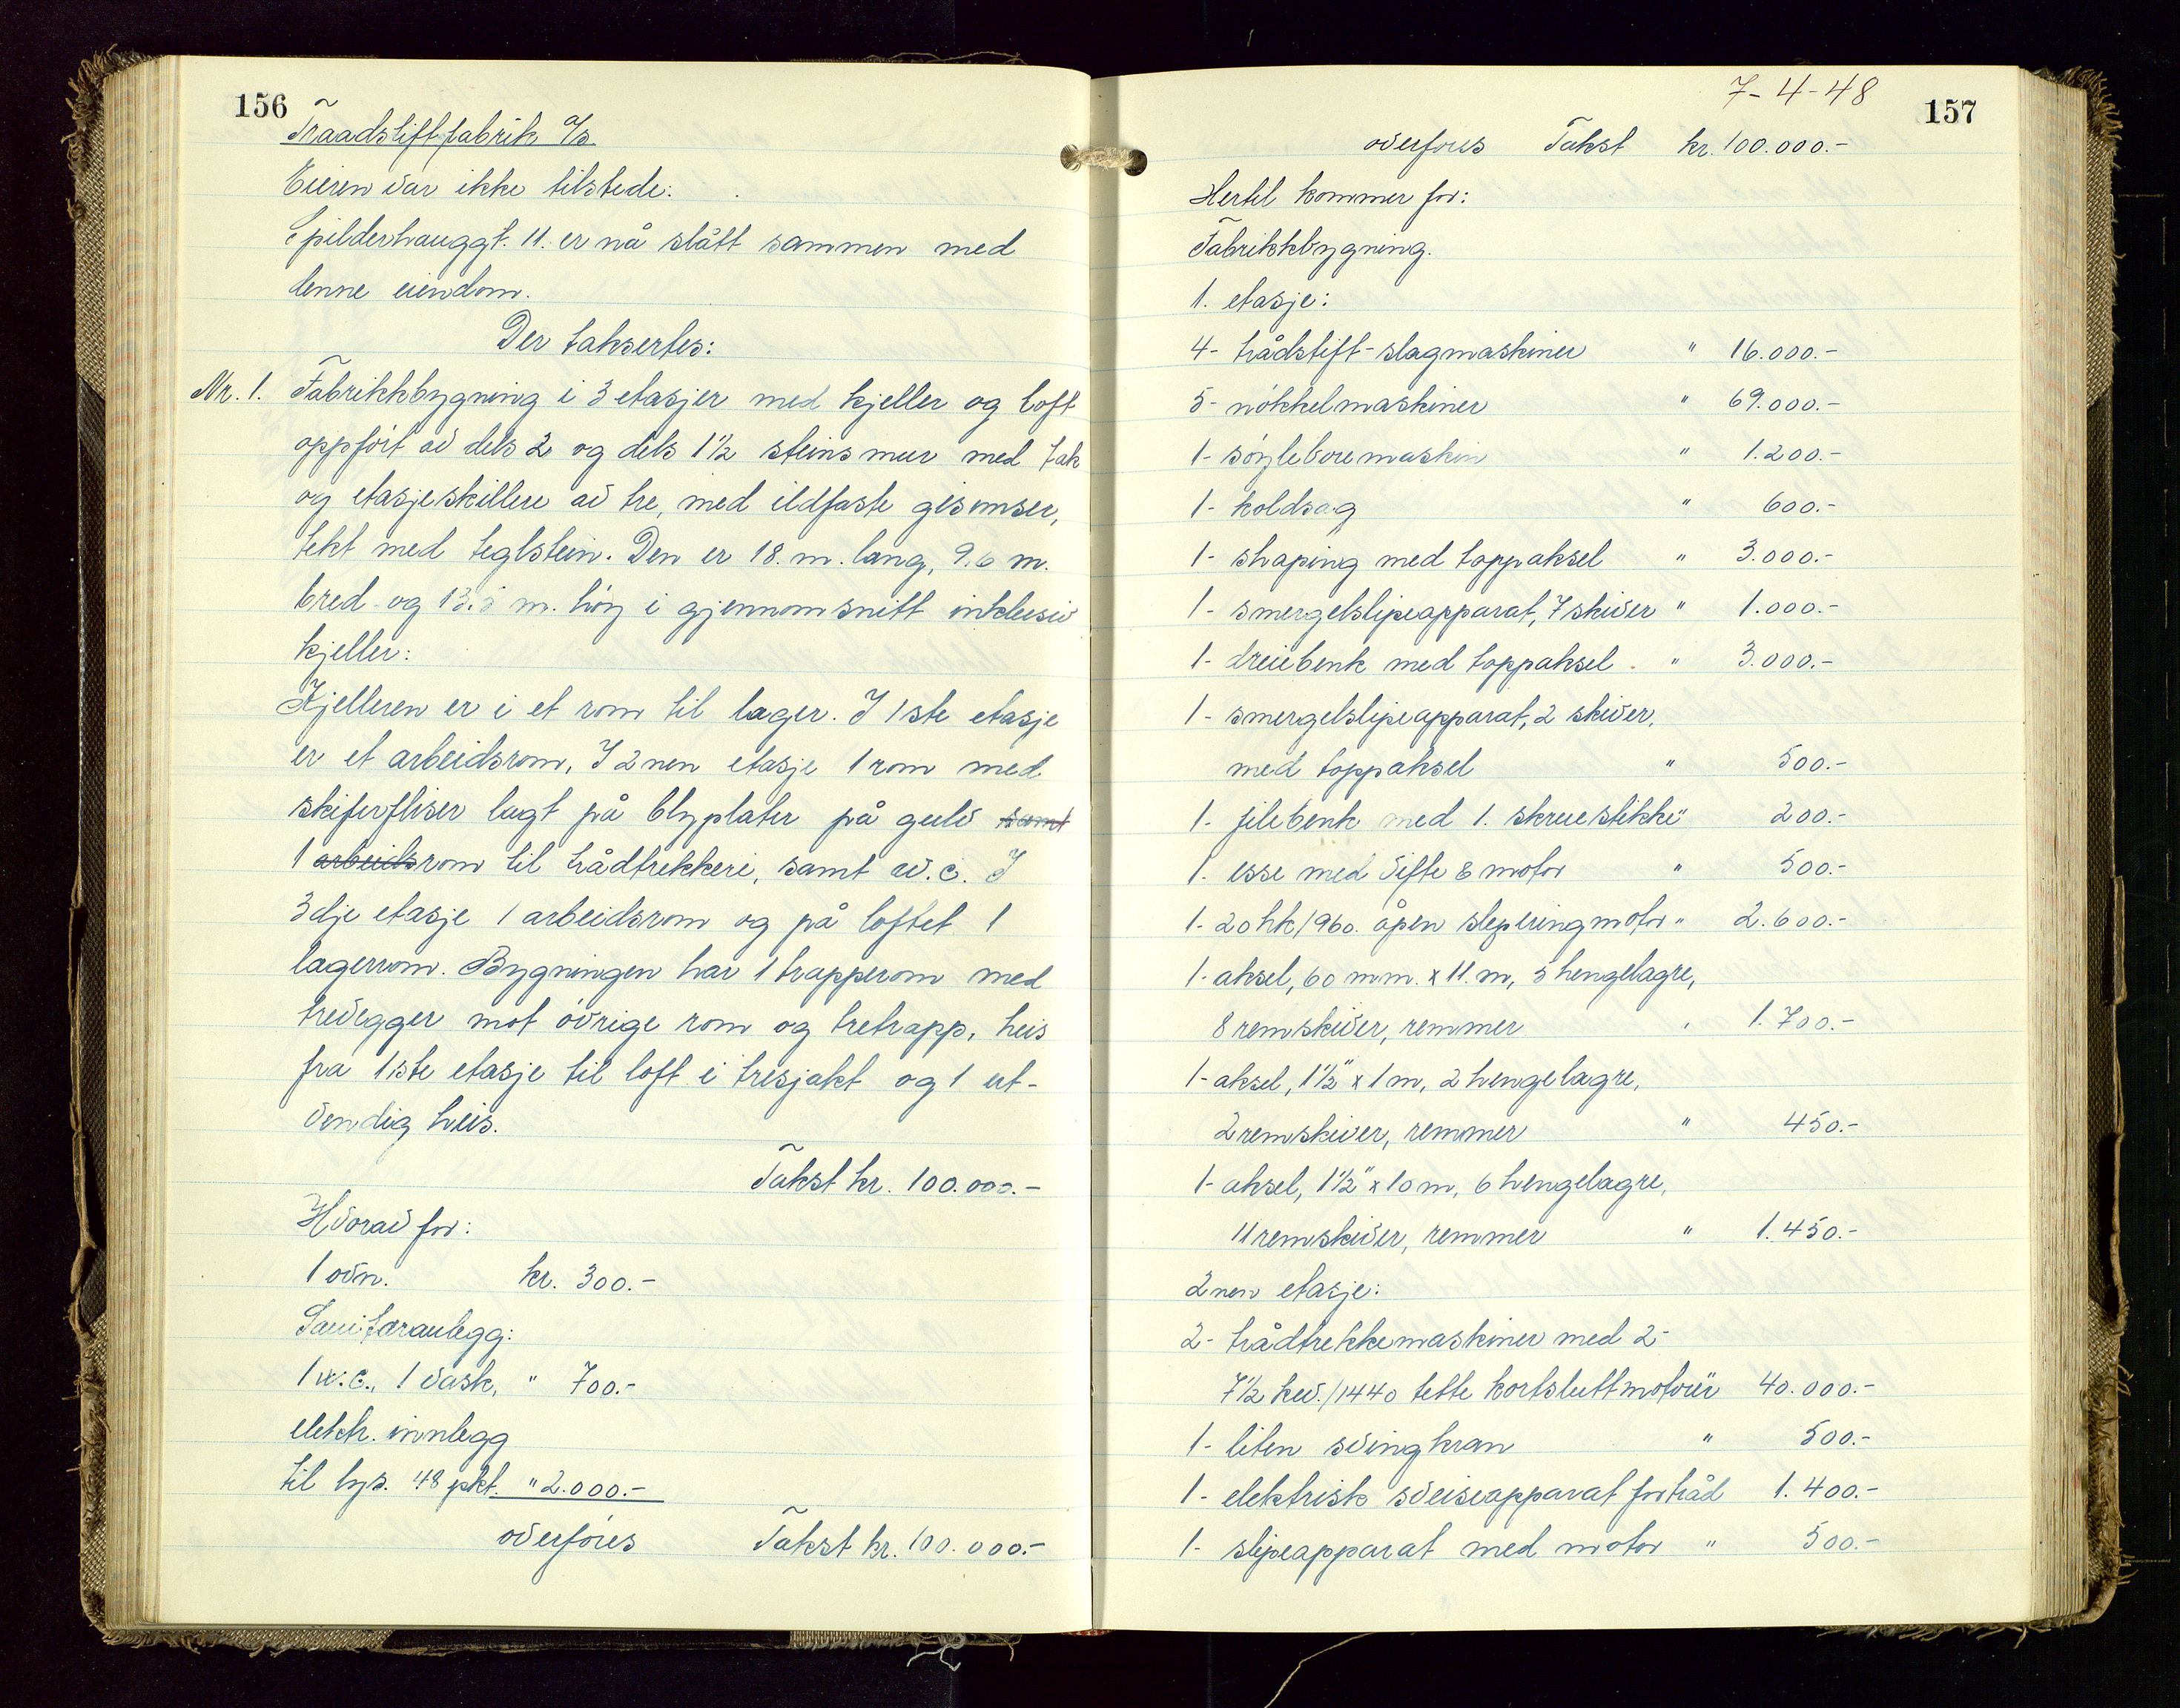 156
Traadstiftfabrik A/S.
Eieren var ikke tilstede.
Spilderhauggt. 11. er nå slått sammen med
denne eiendom.
Der taksertes:
Nr. 1. Fabrikkbygning i 3 etasjer med kjeller og loft
oppført av dels 2 og dels 1½ steins mur med tak
og etasjeskillere av tre, med ildfaste gesimser,
tekt med teglstein. Den er 18. m. lang, 9.6 m.
bred og 13.5 m. høy i gjennomsnitt inklusiv
kjeller:
Kjelleren er i et rom til lager. I 1ste etasje
er et arbeidsrom, I 2nen etasje 1 rom med
skiferfliser lagt på blyplater på gulv samt
1 arbeidsrom til trådtrekkeri, samt w.c. I
3dje etasje 1 arbeidsrom og på loftet 1
lagerrom. Bygningen har 1 trapperom med
trevegger mot øvrige rom og tretrapp, heis
fra 1ste etasje til loft i tresjakt og 1 ut-
vendig heis.
Takst kr. 100.000.-
Hvorav for:
1 ovn. kr. 300.-
Sanitæranlegg:
1 w.c., 1 vask, " 700.-
elektr. innlegg
til lys. 48 pkt. " 2.000.-
overføres Takst kr. 100.000.-
7-4-48
157
overføres Takst kr. 100.000.-
Hertil kommer for:
Fabrikkbygning.
1. etasje:
4- trådstift-slagmaskiner " 16.000.-
5- nökkelmaskiner " 69.000.-
1- søyleboremaskin " 1.200.-
1- koldsag " 600.-
1- shaping med toppaksel " 3.000.-
1- smergelslipeapparat, 7 skiver " 1.000.-
1- dreiebenk med toppaksel. " 3.000.-
1- smergelslipeapparat, 2 skiver,
med toppaksel " 500.-
1. filebenk med 1. skruestikke " 200.-
1. esse med vifte & motor " 500.-
1- 20 hk/960. åpen sleperingmotor " 2.600.-
1- aksel, 60 mm. x 11. m, 5 hengelagre,
8 remskiver, remmer " 1.700.-
1- aksel, 1½" x 1 m, 2 hengelagre,
2 remskiver, remmer " 450.-
1- aksel, 1½" x 10 m, 6 hengelagre,
11 remskiver, remmer " 1.450.-
2nen etasje:
2- trådtrekkemaskiner med 2-
7½ kw./1440 tette kortsluttmotorer " 40.000.-
1- liten svingkran " 500.-
1- elektrisk sveiseapparat for tråd 1.400.-
1- slipeapparat med motor " 500.-